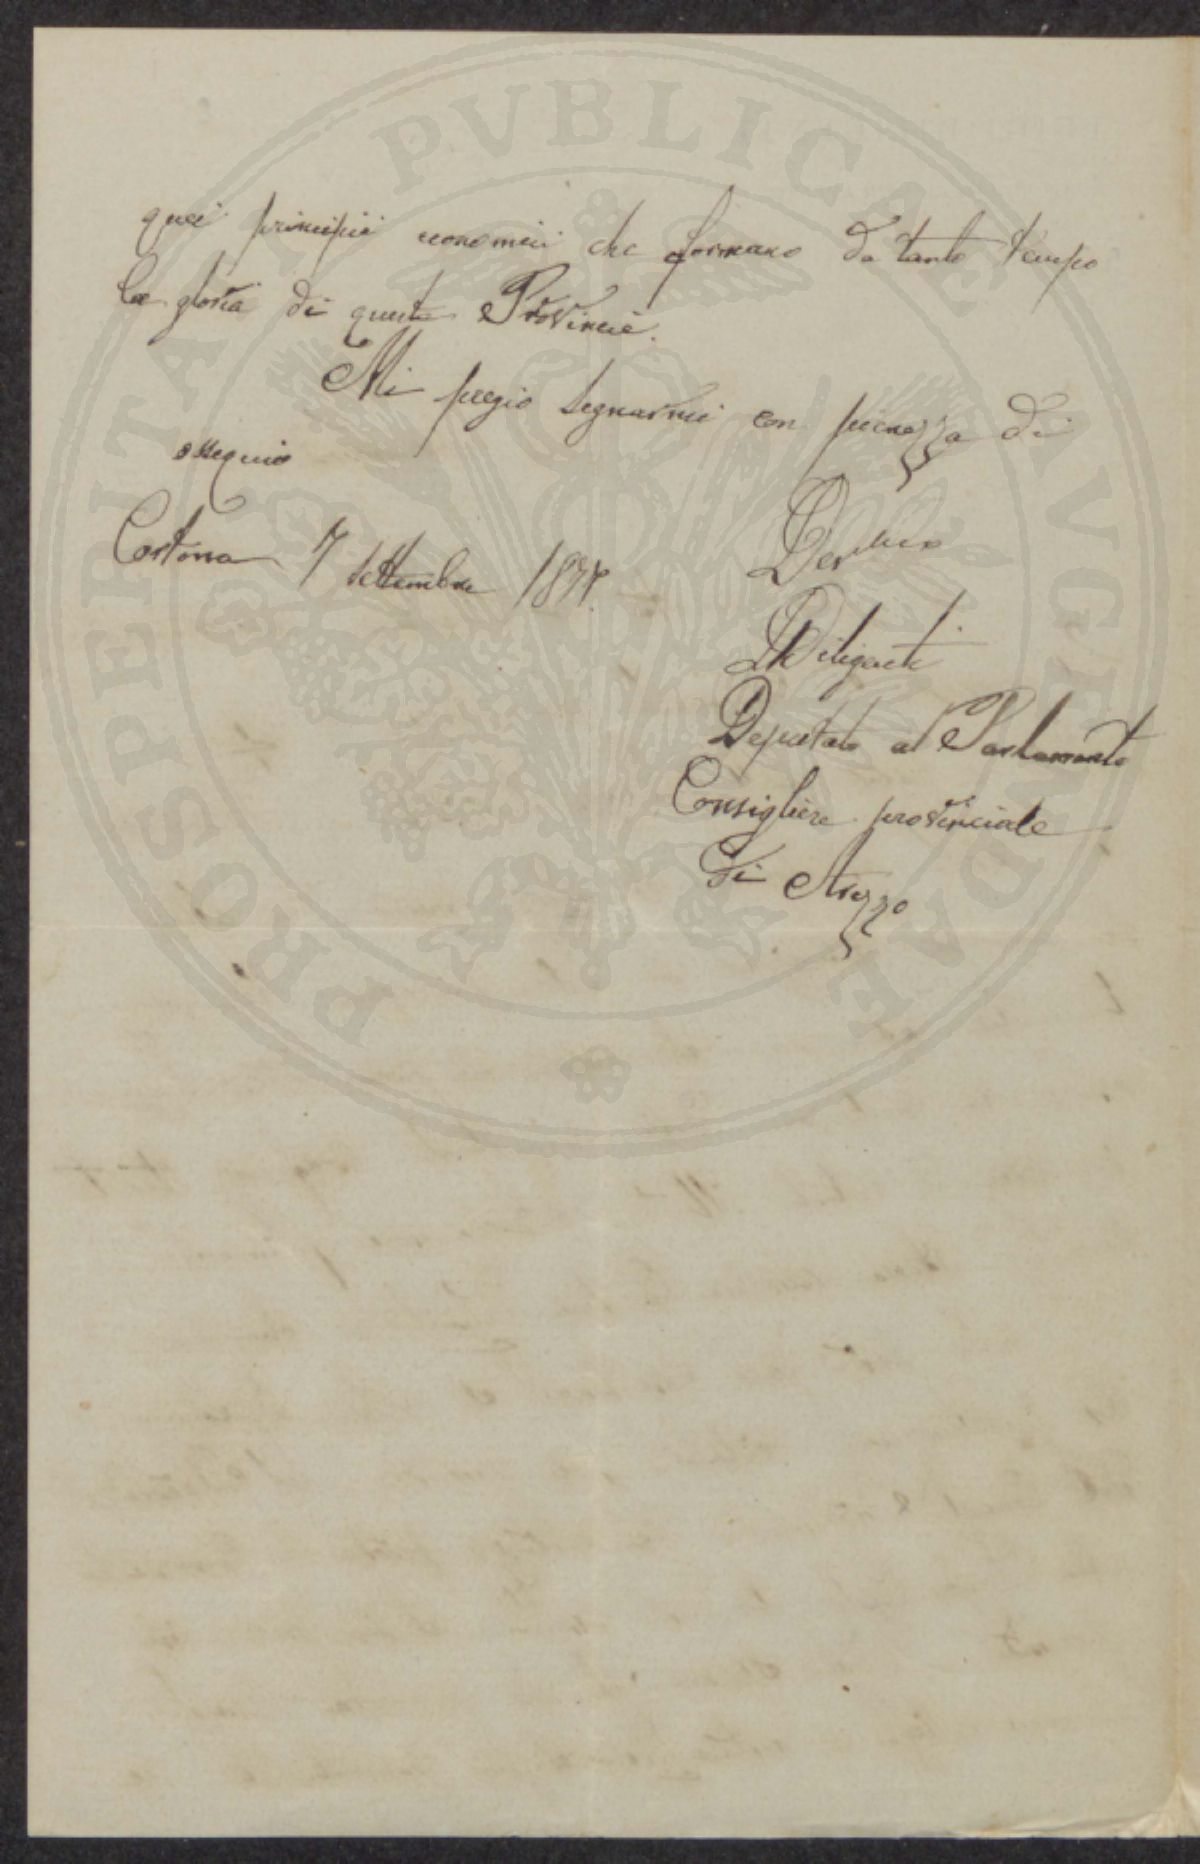 PROSPERITATI PVBLICAE AVGENDAE
quei principii economici che formano da tanto tempo
la gloria di queste Provincie.
Mi pregio segnarmi con pienezza di
ossequio
Cortona 7 Settembre 1874.
Dev.mo
Diligenti
Deputato al Parlamento
Consigliere provinciale
di Arezzo